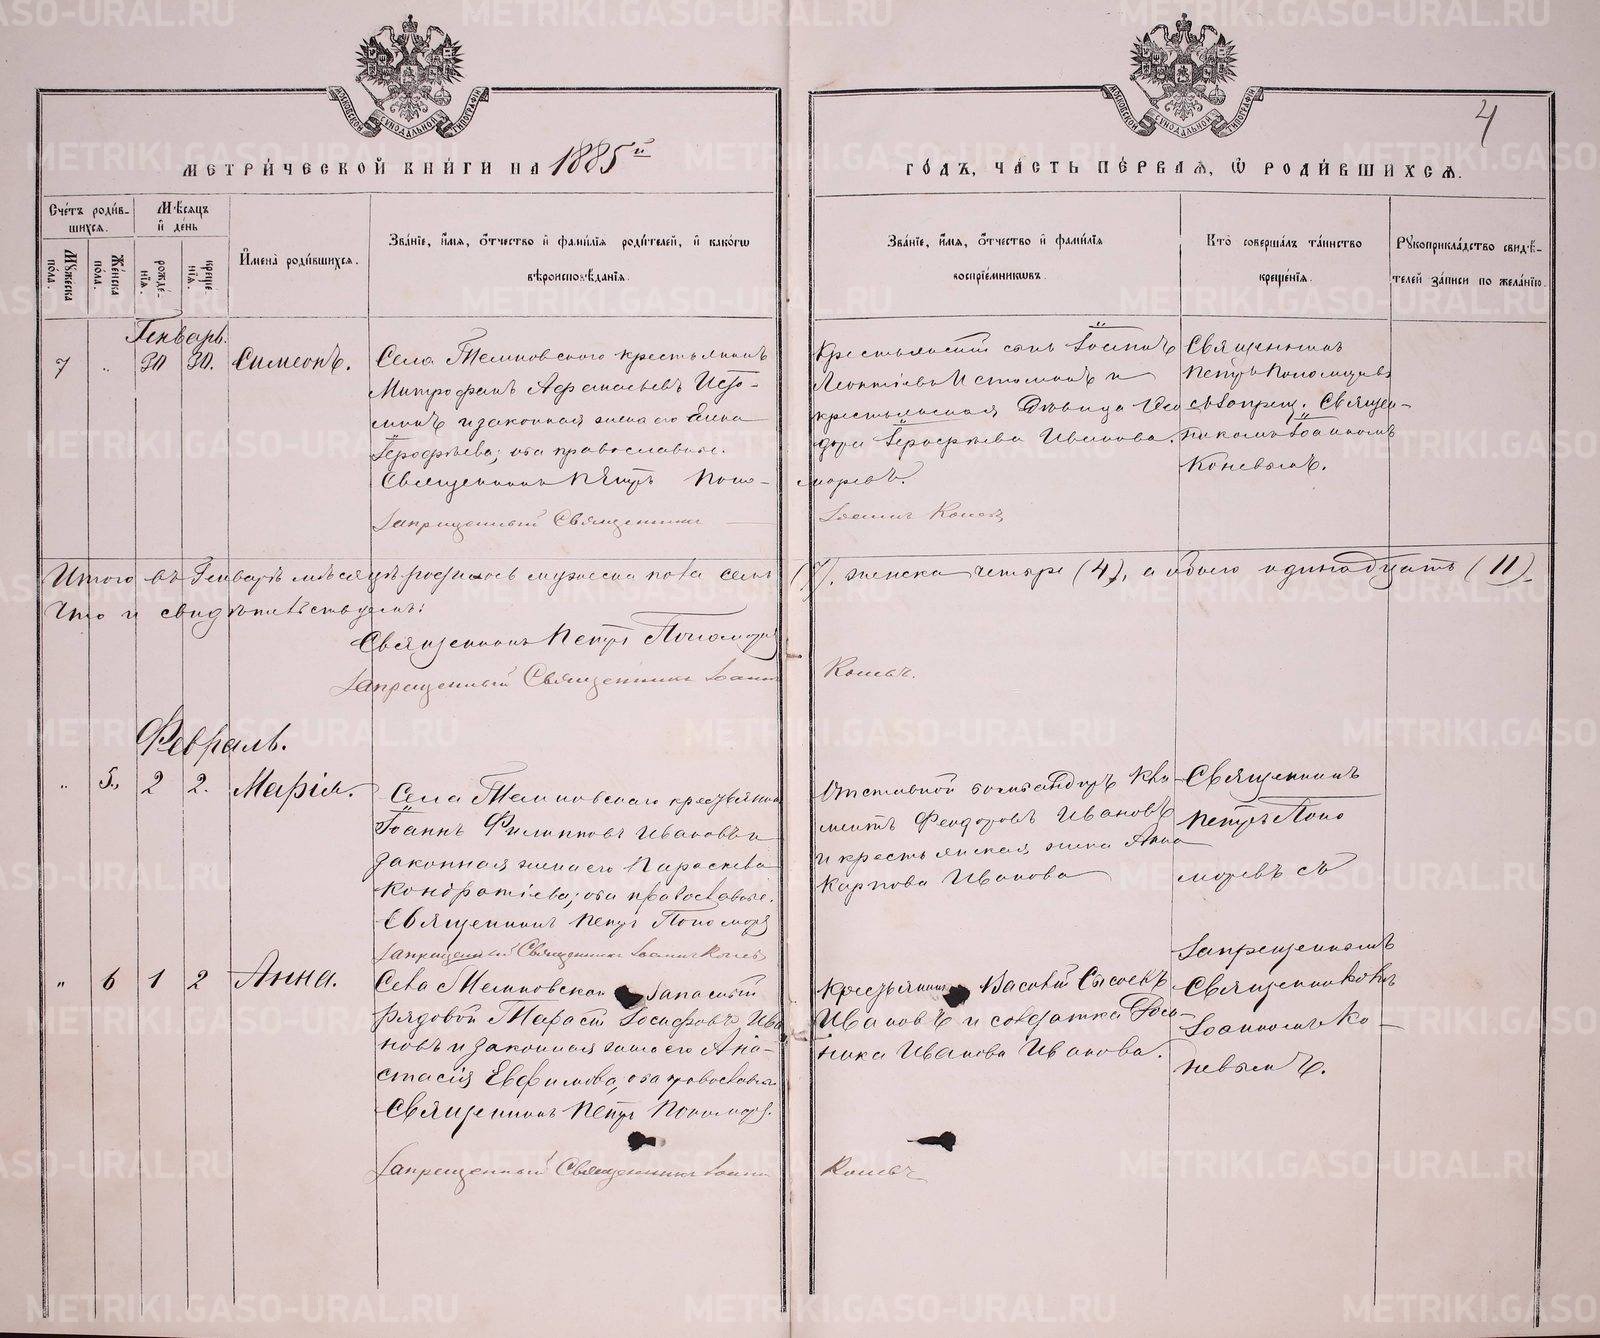 МОСКОВСКОЙ СѴНОДАЛЬНОЙ ТИПОГРАФІИ
МОСКОВСКОЙ СѴНОДАЛЬНОЙ ТИПОГРАФІИ
4
МЕТРИ́ЧЕСКОЙ КНИ́ГИ НА 1885й
ГО́ДЪ, ЧА́СТЬ ПЕ́РВАЯ, Ѿ РОДИ́ВШИХСЯ.
Сче́тъ роди́в-шихся.
Мѣсяцъ и де́нь
Му́жеска по́ла.
Же́нска по́ла.
рожде́-нїя.
креще́-нїя.
И҆мена̀ роди́вшихся.
Зва́нїе, и҆́мя, ѻ҆́тчество и҆ фами́лїя роди́телей, и҆ како́гѡ
вѣроисповѣ́данїя.
Зва́нїе, и҆́мя, ѻ҆́тчество и҆ фами́лїя
воспрїе́мниковъ.
Кто̀ соверша́лъ та́инство
креще́нїя.
Рꙋкоприкла́дство свидѣ́-
телей за́писи по жела́нїю.
Генварь.
7 " 30 30. Симеонъ.
Села Темновского крестьянинъ
Митрофанъ Афанасьевъ Исто-
минъ и законная жена его Елена
Герофѣева; оба православные.
Священникъ Пётръ Поно-
Запрещенный Священникъ
Крестьянскій сынъ Іоаннъ
Леонтіевъ Истоминъ и
крестьянская дѣвица Ѳео
дора Герофѣева Иванова.
моревъ.
Іоаннъ Коневъ
Священникъ
Петръ Пономаревъ
съ Запрещ. Священ-
никомъ Іоанномъ
Коневымъ.
Итого въ Генварѣ мѣсяцѣ родилось мужеска пола семь (7), женска четыре (4), а обоего одинадцать (11).
Что и свидѣтельствуемъ:
Священникъ Петръ Пономарев
Запрещенный Священникъ Іоанн
Коневъ.
Февраль.
" 5. 2 2. Марія.
Села Темновскаго крестьянин
Іоаннъ Филипповъ Ивановъ и
законная жена его Параскева
Кондратіева; оба православные.
Священникъ Петръ Пономарев
Запрещенный Священникъ Іоаннъ Коневъ
Отставной бомбандиръ Кли
ментъ Феодоровъ Ивановъ
и крестьянская жена Анна
Карпова Иванова
Священникъ
Петръ Поно
моревъ съ
Запрещеннымъ
Священникомъ
Іоанномъ Ко-
невымъ.
" 6 1 2 Анна.
Села Темновскаго Запасный
рядовой Тарасій Іосифовъ Ива
новъ и законная жена его Ана-
стасія Евфимова, оба православные
Священникъ Петръ Пономарев.
Запрещенный Священникъ Іоанн
Крестьянинъ Василій Сысоевъ
Ивановъ и солдатка Дом-
ника Иванова Иванова.
Коневъ